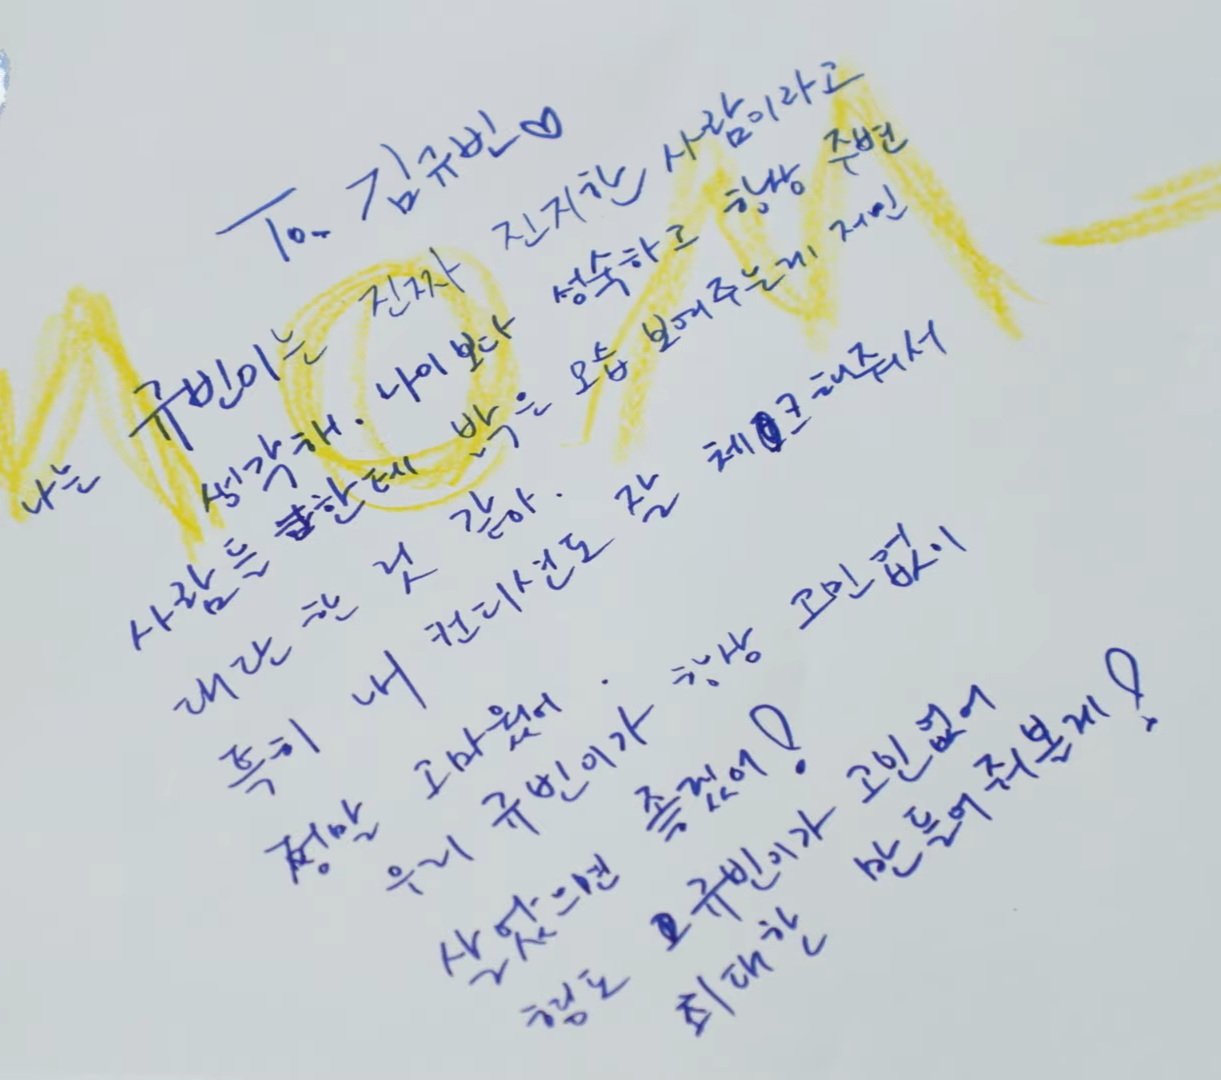 To. 김규빈♡
나는 규빈이는 진짜 진지한 사람이라고
생각해. 나이보다 성숙하고 항상 주변
사람들한테 밝은 모습 보여주는게
대단한 것 같아.
특히 내 컨디션도 잘 체크해줘서
정말 고마웠어.
우리 규빈이가 항상 고민 없이
살았으면 좋겠어!
형도 규빈이가 고민 없게
최대한 만들어줘볼게!